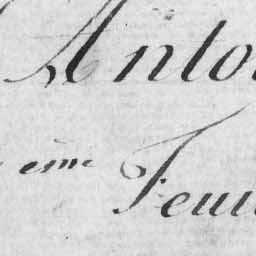 Anto
eme Feui